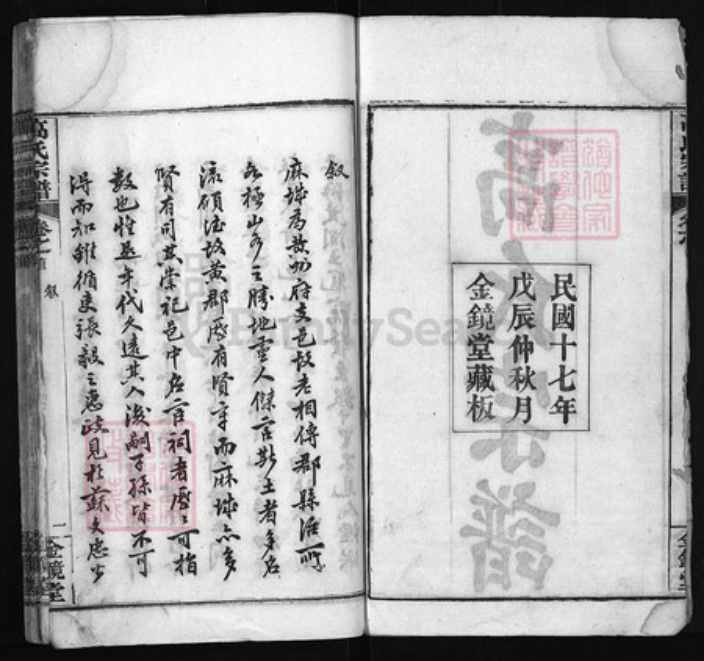 民國十七年
戊辰仲秋月
金鏡堂藏板
敘
麻城為黃州府支邑故老相傳郡縣治所
必極山水之勝地靈人傑官斯土者多名
流碩德故黃郡歷有賢守而麻城亦多
賢有司其崇祀邑中名宦祠者歷歷可指
數也惟是年代久遠其人後嗣子孫皆不可
得而知雖循吏張毅之惠政見於蘇文忠公
高氏宗譜
卷之首
敘
二
金鏡堂
FamilySearch